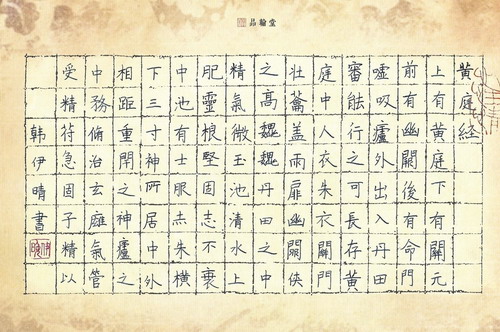 品翰堂
黄庭経
上有黄庭下有關元
前有幽闕後有命門
嘘吸廬外出入丹田
審能行之可長存黄
庭中人衣朱衣關門
壮籥盖兩扉幽闕侠
之髙魏魏丹田之中
精氣微玉池清水上
肥靈根堅固志不衰
中池有士服赤朱横
下三寸神所居中外
相距重閇之神廬之
中務脩治玄廱氣管
受精苻急固子精以
韓伊晴書